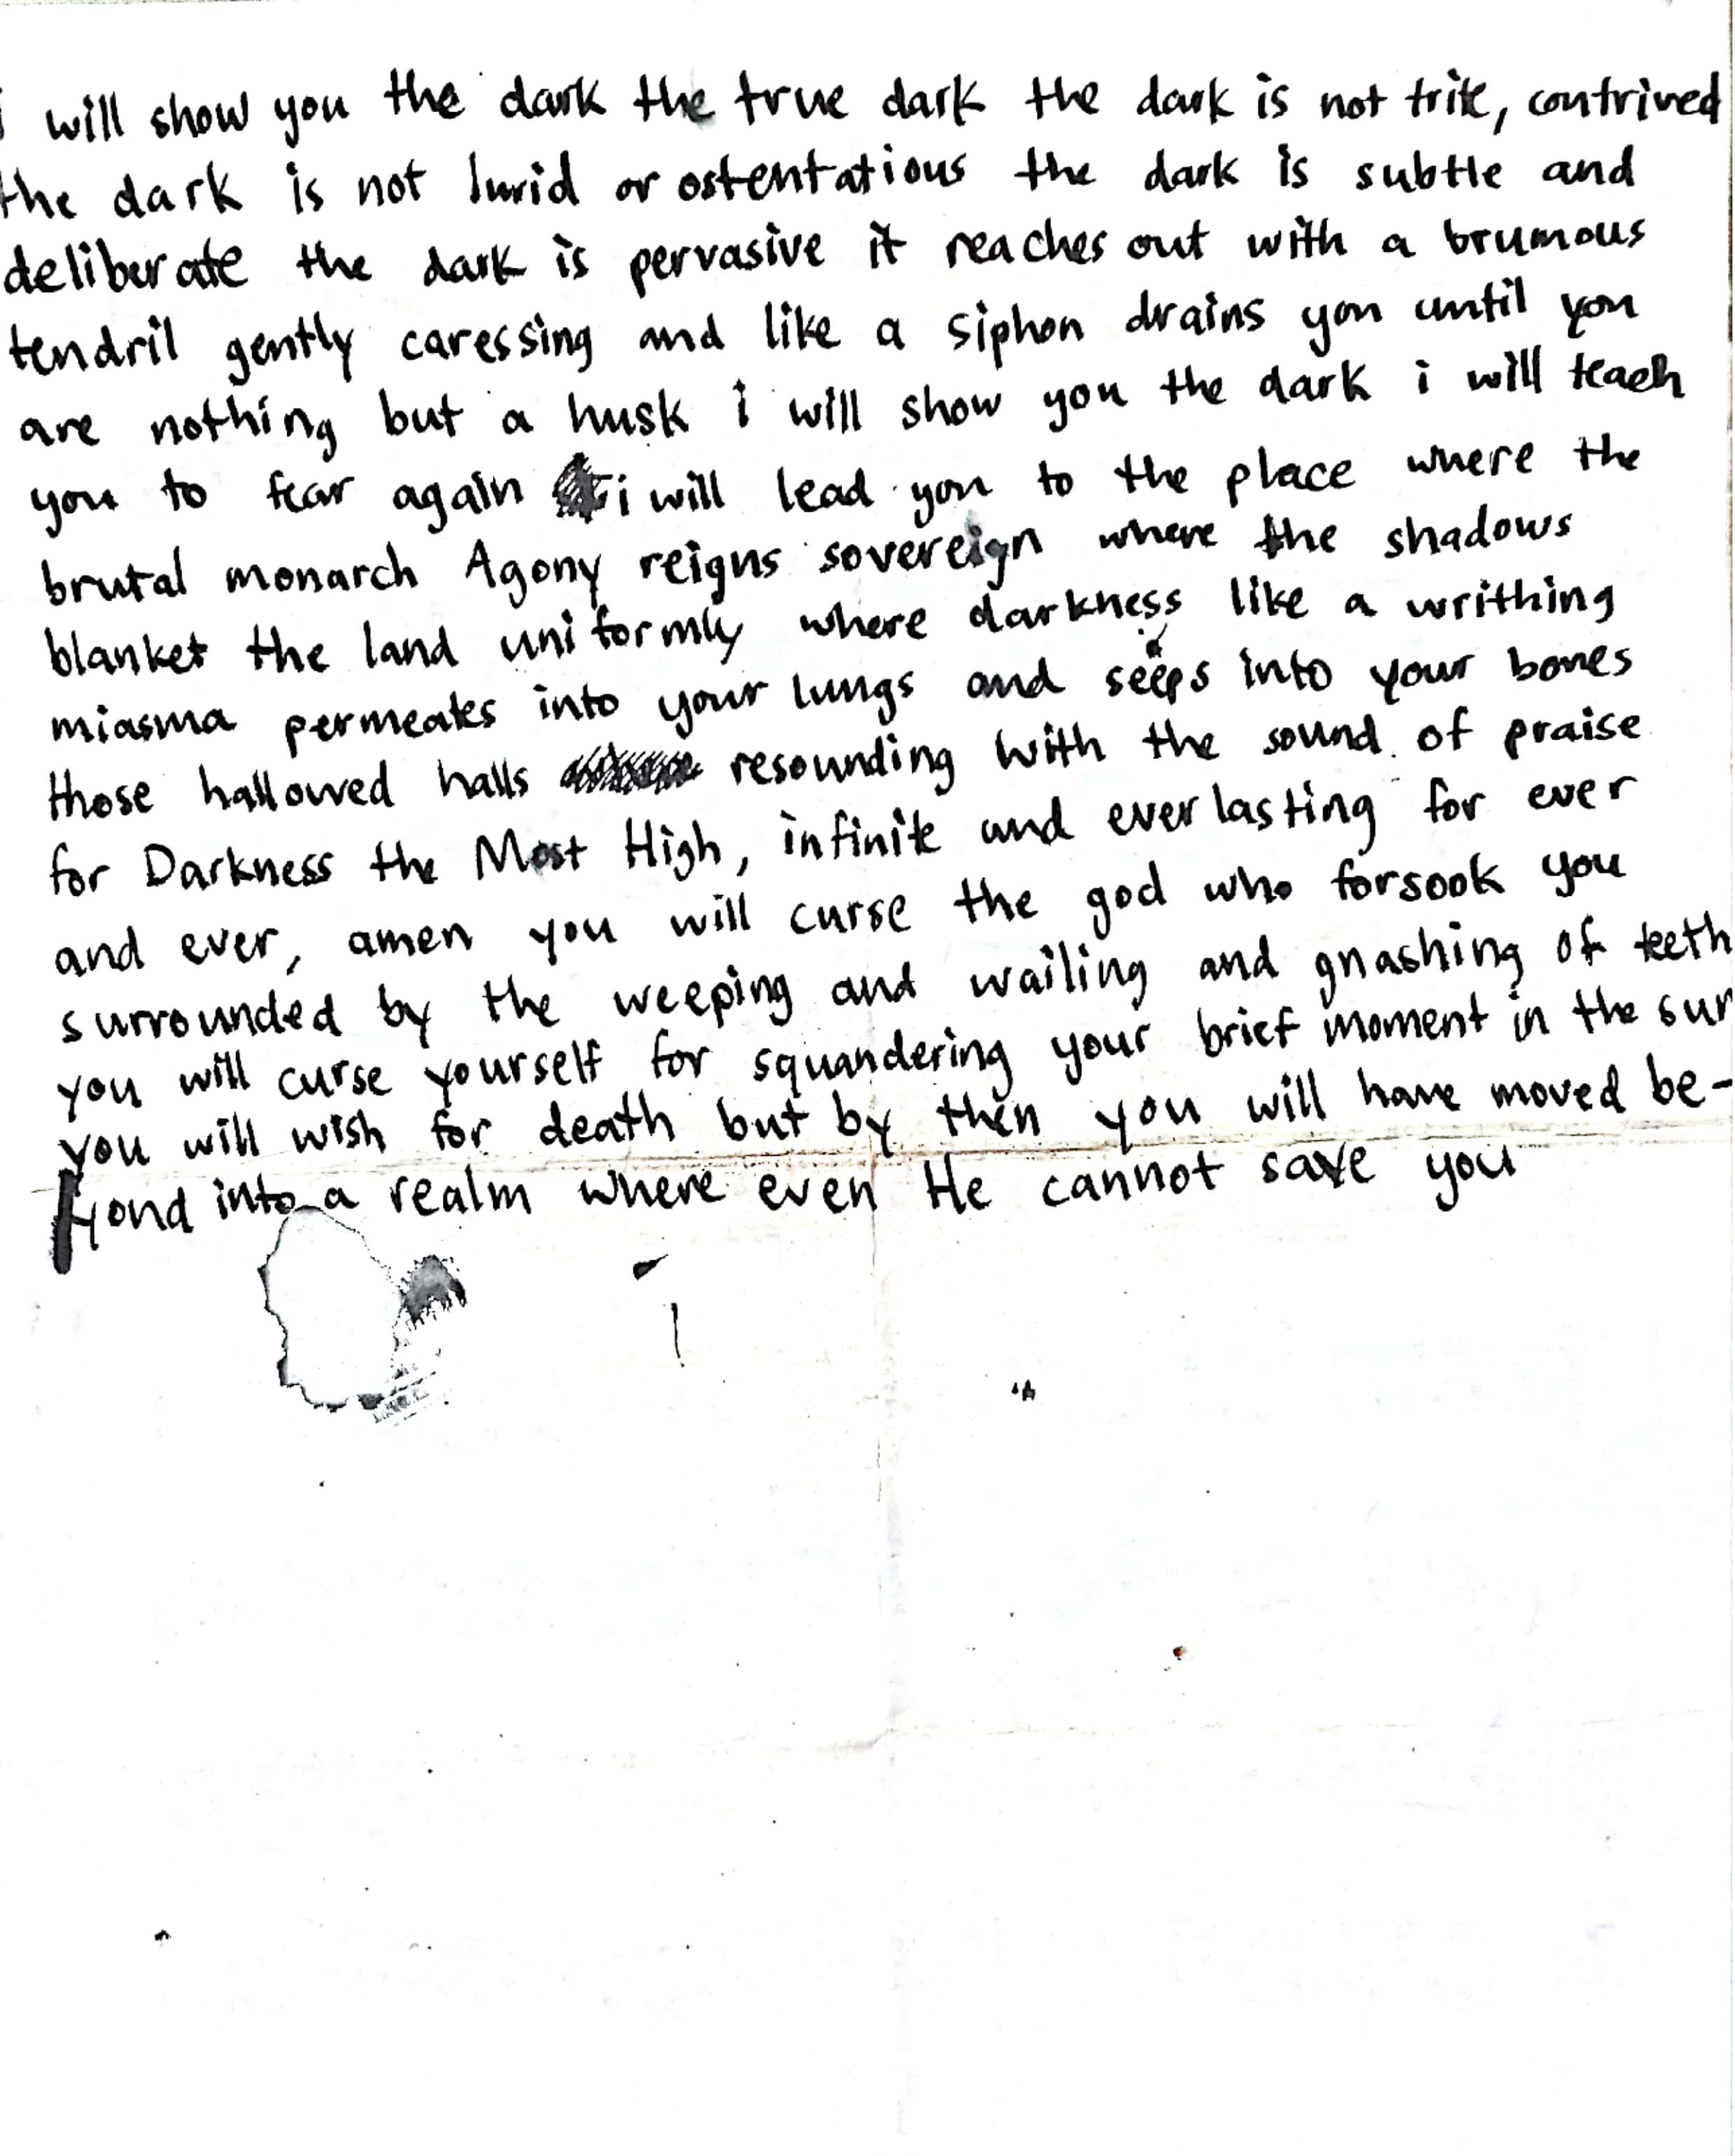 i will show you the dark the true dark the dark is not trite, contrived
the dark is not lurid or ostentatious the dark is subtle and
deliberate the dark is pervasive it reaches out with a brumous
tendril gently caressing and like a siphon drains you until you
are nothing but a husk i will show you the dark i will teach
you to fear again i will lead you to the place where the
brutal monarch Agony reigns sovereign where the shadows
blanket the land uniformly where darkness like a writhing
miasma permeates into your lungs and seeps into your bones
those hallowed halls resounding with the sound of praise
for Darkness the Most High, infinite and everlasting for ever
and ever, amen you will curse the god who forsook you
surrounded by the weeping and wailing and gnashing of teeth
you will curse yourself for squandering your brief moment in the sun
you will wish for death but by then you will have moved be-
yond into a realm where even He cannot save you